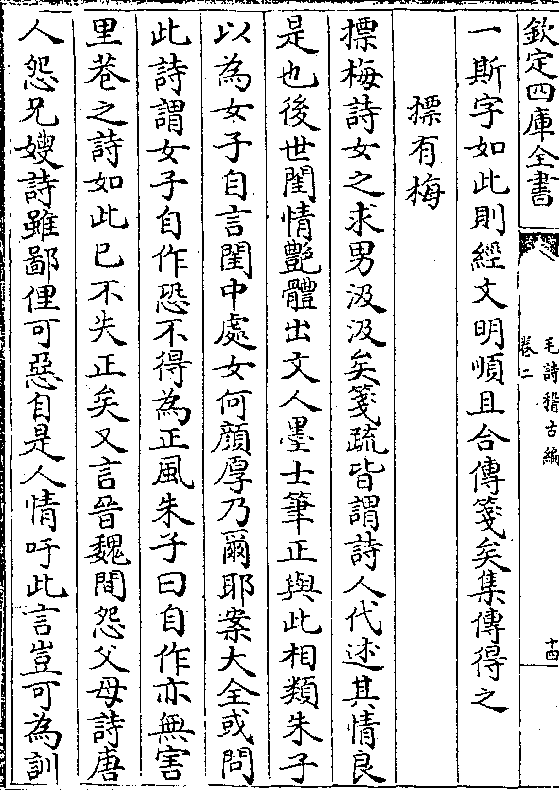 欽定四庫全書
毛詩稽古編
卷二
十四
一斯字如此則經文明順且合傳箋矣集傳得之
摽有梅
摽梅詩女之求男汲汲矣箋疏皆謂詩人代述其情良
是也後世閨情艷體出文人墨士筆正與此相類朱子
以為女子自言閨中處女何顏厚乃爾耶案大全或問
此詩謂女子自作恐不得為正風朱子曰自作亦無害
里巷之詩如此已不失正矣又言晉魏間怨父母詩唐
人怨兄嫂詩雖鄙俚可惡自是人情吁此言豈可為訓